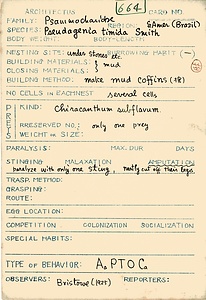 ARCHITECTUS 664 CARD NO.
FAMILY: Psammocharidae S Amer (Brazil)
SPECIES: Pseudagenia timida Smith
BODY WEIGHT: BODY LENGTH:
NESTING SITE: under stones etc BURROWING HABIT (-)
BUILDING MATERIALS: } mud
CLOSING MATERIALS:
BUILDING METHOD: make mud coffins (18)
NO. CELLS IN EACH NEST several cells
PREYS
KIND: Chiracanthium subflavum
PRESERVED NO.: only one prey
WEIGHT OR SIZE:
PARALYSIS: MAX. DUR DAYS
STINGING MALAXATION AMPUTATION
paralyze with only one sting, mostly cut off their legs.
TRASP. METHOD:
GRASPING:
ROUTE:
EGG LOCATION:
COMPETITION COLONIZATION SOCIALIZATION
SPECIAL HABITS:
TYPE OF BEHAVIOR: A P T O C
OBSERVERS: Bristowe REPORTERS: